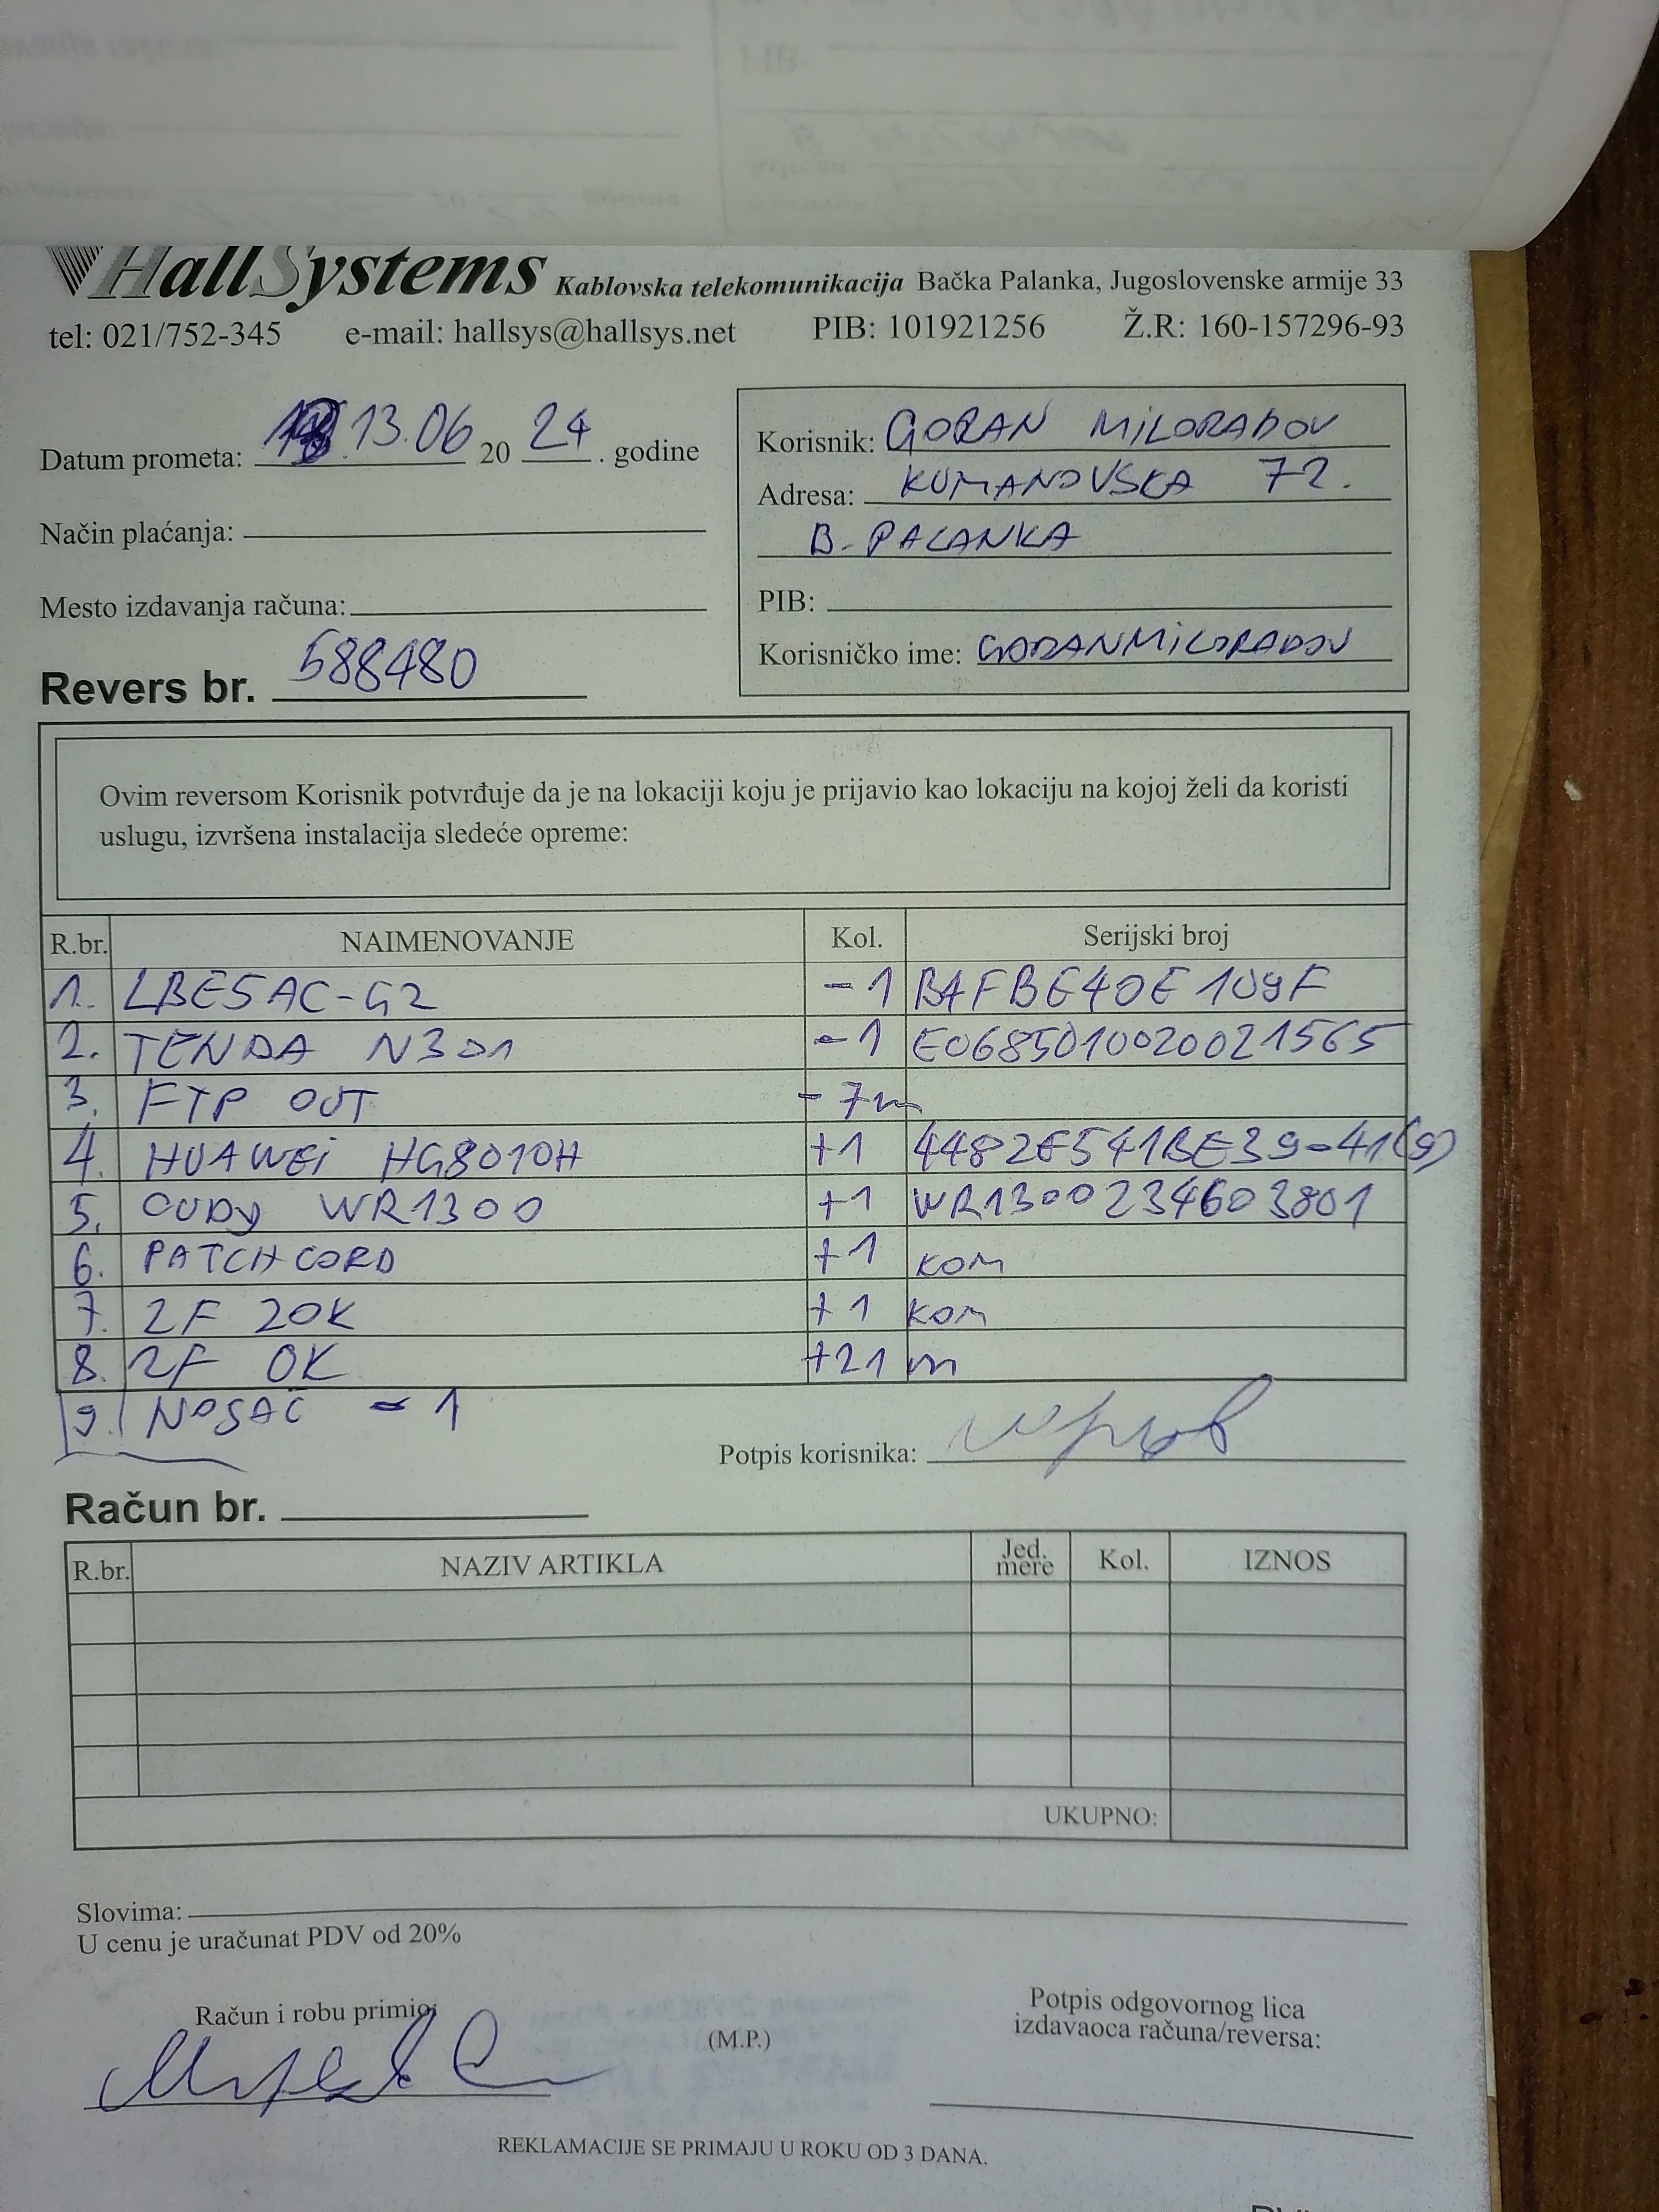 HallSystems Kablovska telekomunikacija Bačka Palanka, Jugoslovenske armije 33
tel: 021/752-345 e-mail: hallsys@hallsys.net PIB: 101921256 Ž.R: 160-157296-93
Datum prometa: 13.06 20 24 . godine
Način plaćanja:
Mesto izdavanja računa:
Revers br. 588480
Korisnik: GORAN MILORADOV
Adresa: KUMANOVSKA 72.
B. PALANKA
PIB:
Korisničko ime: GORANMILORADOV
Ovim reversom Korisnik potvrđuje da je na lokaciji koju je prijavio kao lokaciju na kojoj želi da koristi
uslugu, izvršena instalacija sledeće opreme:
R.br. NAIMENOVANJE Kol. Serijski broj
1. LBE5AC-G2 -1 B4FBE40E109F
2. TENDA N301 -1 E0685010020021565
3. FTP OUT -7m
4. HUAWEi HG8010H +1 4482E541BE39-41(9)
5. CUDY WR1300 +1 WR1300234603801
6. PATCHCORD +1 KOM
7. 2F ZOK +1 KOM
8. 2F OK +21 m
9. NOSAČ -1
Potpis korisnika:
Račun br.
R.br. NAZIV ARTIKLA Jed. mere Kol. IZNOS
UKUPNO:
Slovima:
U cenu je uračunat PDV od 20%
Račun i robu primio:
(M.P.)
Potpis odgovornog lica
izdavaoca računa/reversa:
REKLAMACIJE SE PRIMAJU U ROKU OD 3 DANA.